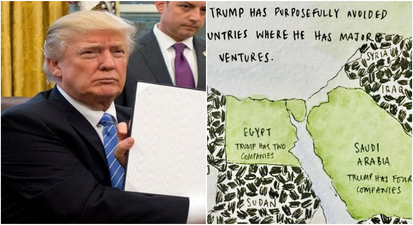 TRUMP HAS PURPOSEFULLY AVOIDED
UNTRIES WHERE HE HAS MAJOR
VENTURES.
SYRIA
IRAQ
EGYPT
TRUMP HAS TWO
COMPANIES
SAUDI
ARABIA
TRUMP HAS FOUR
COMPANIES
SUDAN